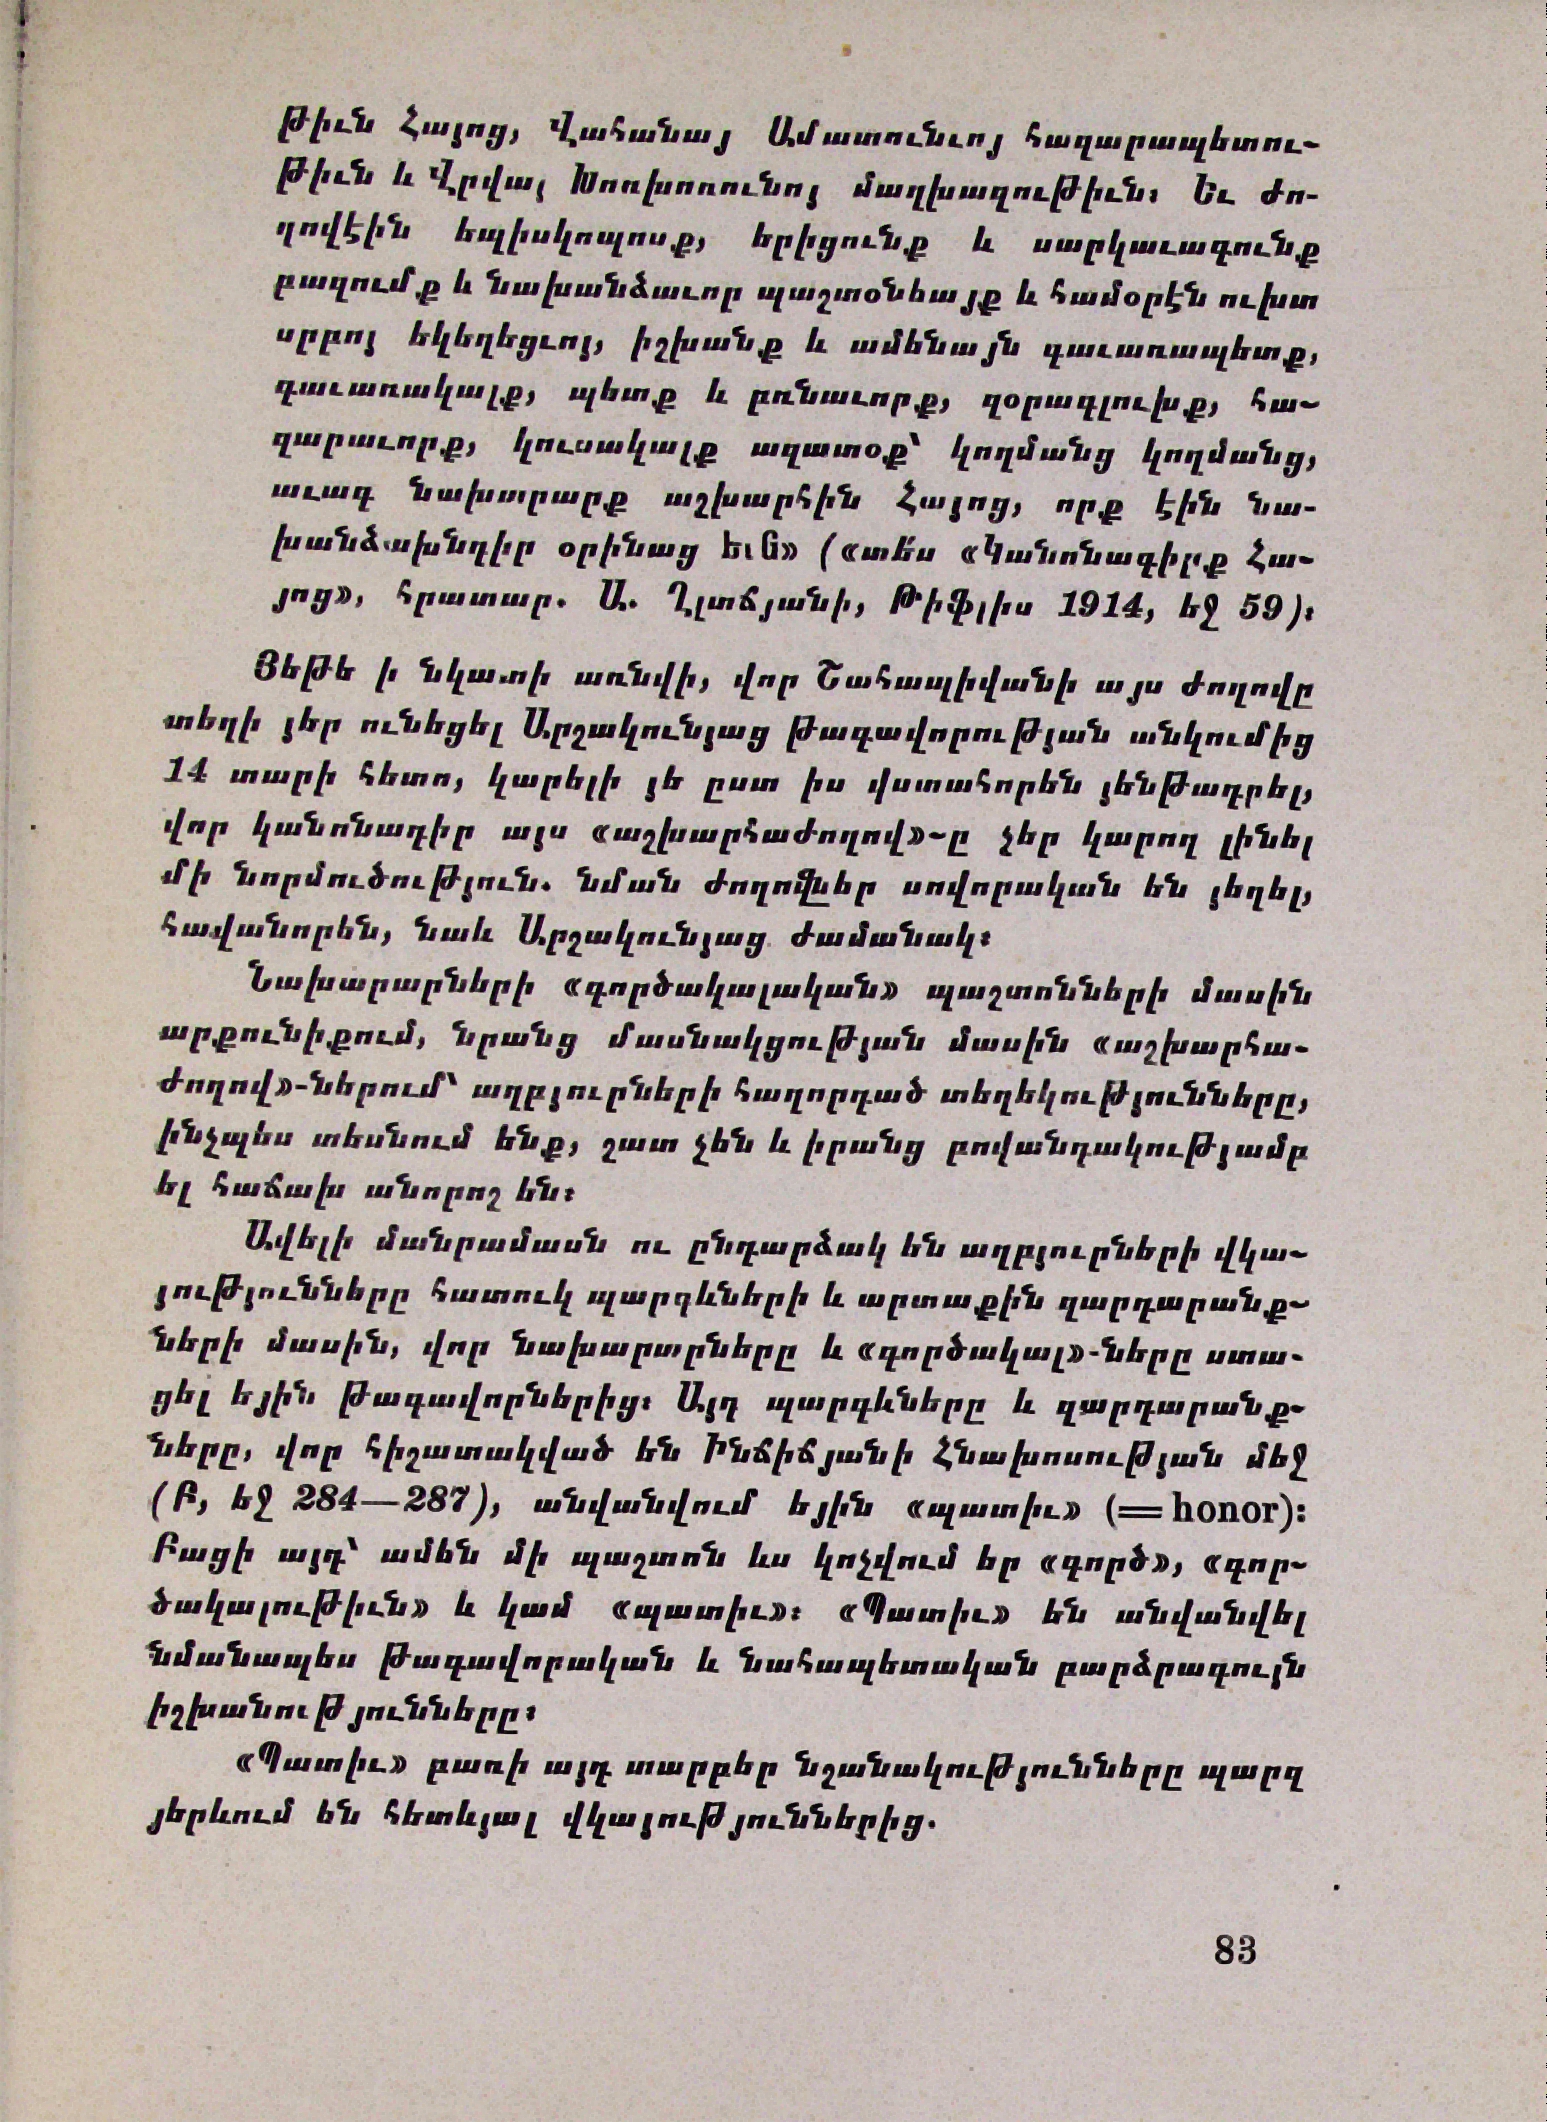 թիւն Հայոց, Վահանայ Ամատունւոյ հազարապետու-
թիւն և Վրվայ Խոռխոռունոյ մաղխազութիւն։ Եւ ժո-
ղովէին եպիսկոպոսք, երիցունք և սարկաւագունք
բազումք և նախանձաւոր պաշտօնեայք և համօրէն ուխտ
սրբոյ եկեղեցւոյ, իշխանք և ամենայն գաւառապետք,
գաւառակալք, պետք և բռնաւորք, զօրագլուխք, հա-
զարաւորք, կուսակալք ազատօք՝ կողմանց կողմանց,
աւագ նախարարք աշխարհին Հայոց, որք էին նա-
խանձախնդիր օրինաց ելն» («տե՛ս «Կանոնագիրք Հա-
յոց», հրատար. Ա. Ղլտճյանի, Թիֆլիս 1914, եջ 59)։
Յեթե ի նկատի առնվի, վոր Շահապիվանի այս ժողովը
տեղի յեր ունեցել Արշակունյաց թագավորության անկումից
14 տարի հետո, կարելի յե ըստ իս վստահորեն յենթադրել,
վոր կանոնադիր այս «աշխարհաժողով»-ը չեր կարող լինել
մի նորմուծություն. նման ժողովներ սովորական են յեղել,
հավանորեն, նաև Արշակունյաց ժամանակ։
Նախարարների «գործակալական» պաշտոնների մասին
արքունիքում, նրանց մասնակցության մասին «աշխարհա-
ժողով»-ներում՝ աղբյուրների հաղորդած տեղեկությունները,
ինչպես տեսնում ենք, շատ չեն և իրանց բովանդակությամբ
ել հաճախ անորոշ են։
Ավելի մանրամասն ու ընդարձակ են աղբյուրների վկա-
յությունները հատուկ պարգևների և արտաքին զարդարանք-
ների մասին, վոր նախարարները և «գործակալ»-ները ստա-
ցել եյին թագավորներից։ Այդ պարգևները և զարդարանք-
ները, վոր հիշատակված են Ինճիճյանի Հնախոսության մեջ
(Բ, եջ 284—287), անվանվում եյին «պատիւ» (=honor)։
Բացի այդ՝ ամեն մի պաշտոն ևս կոչվում եր «գործ», «գոր-
ծակալութիւն» և կամ «պատիւ»։ «Պատիւ» են անվանվել
նմանապես թագավորական և նահապետական բարձրագույն
իշխանությունները։
«Պատիւ» բառի այդ տարբեր նշանակությունները պարզ
յերևում են հետևյալ վկայություններից.
83